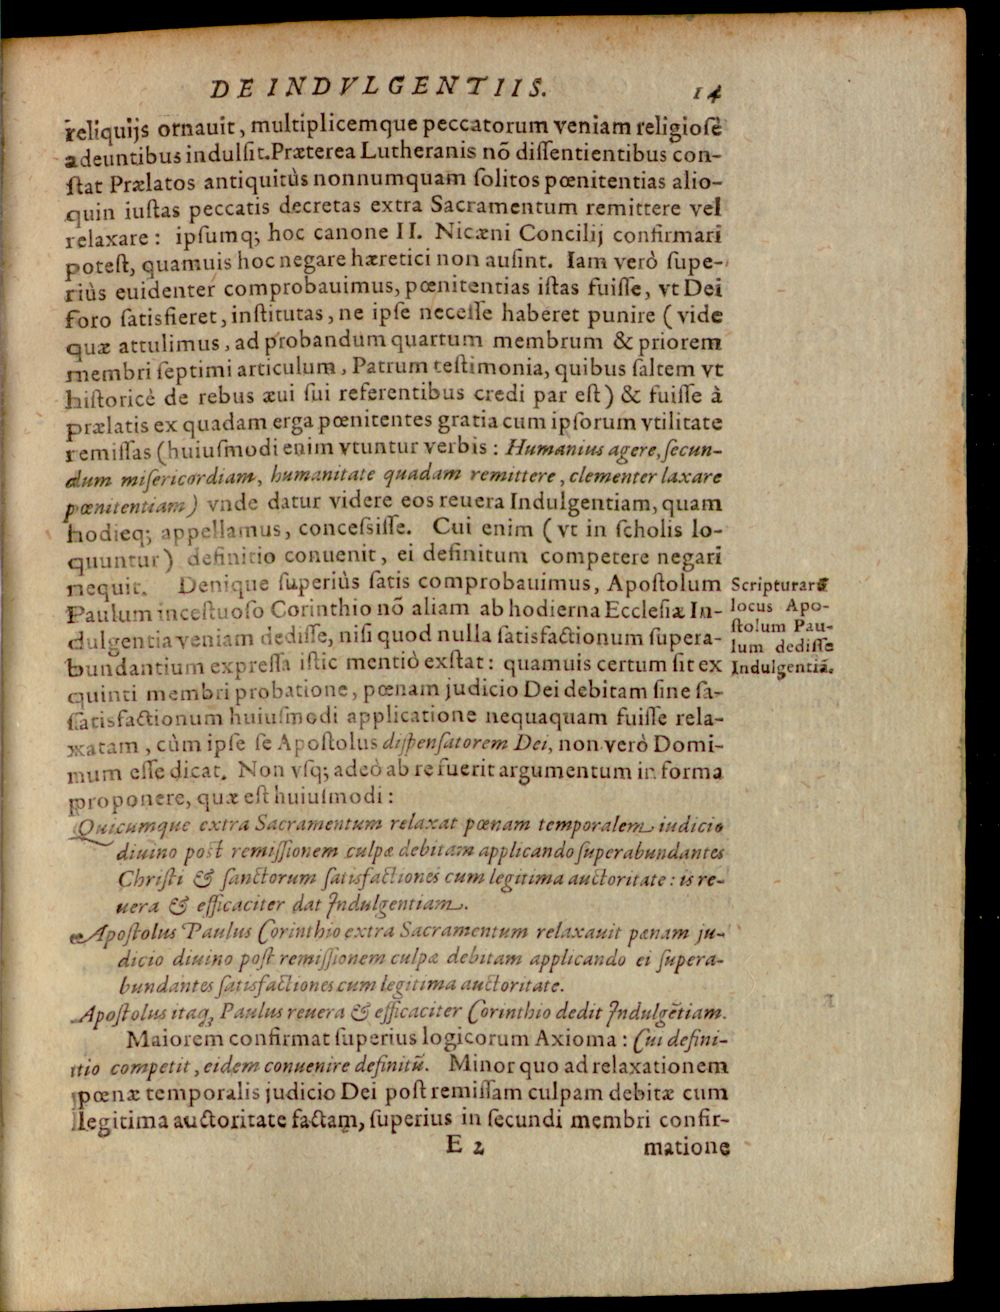 DE INDVLGENTIIS. 14
reliquijs ornauit, multiplicemque peccatorum veniam religiosè
adeuntibus indulsit. Præterea Lutheranis nō dissentientibus con-
stat Prælatos antiquitùs nonnumquam solitos pœnitentias alio-
quin iustas peccatis decretas extra Sacramentum remittere vel
relaxare: ipsumq; hoc canone II. Nicæni Concilij confirmari
potest, quamuis hoc negare hæretici non ausint. Iam verò supe-
riùs euidenter comprobauimus, pœnitentias istas fuisse, vt Dei
foro satisfieret, institutas, ne ipse necesse haberet punire (vide
quæ attulimus, ad probandum quartum membrum & priorem
membri septimi articulum, Patrum testimonia, quibus saltem vt
historicè de rebus æui sui referentibus credi par est) & fuisse à
prælatis ex quadam erga pœnitentes gratia cum ipsorum vtilitate
remissas (huiusmodi enim vtuntur verbis: Humanius agere, secun-
dum misericordiam, humanitate quadam remittere, clementer laxare
pœnitentiam) vnde datur videre eos reuera Indulgentiam, quam
hodieq; appellamus, concessisse. Cui enim (vt in scholis lo-
quuntur) definitio conuenit, ei definitum competere negari
nequit. Denique superiùs satis comprobauimus, Apostolum
Paulum incestuoso Corinthio nō aliam ab hodierna Ecclesiæ In-
dulgentia veniam dedisse, nisi quod nulla satisfactionum supera-
bundantium expressa istic mentiò exstat: quamuis certum sit ex
quinti membri probatione, pœnam judicio Dei debitam sine sa-
satisfactionum huiusmodi applicatione nequaquam fuisse rela-
xatam, cùm ipse se Apostolus dispensatorem Dei, non verò Domi-
num esse dicat. Non vsq; adeò ab re fuerit argumentum in forma
proponere, quæ est huiusmodi:
Scripturarū
locus Apo-
stolum Pau-
lum dedisse
Indulgentiā.
Quicumque extra Sacramentum relaxat pœnam temporalem iudicio
diuino post remissionem culpæ debitam applicando superabundantes
Christi & sanctorum satisfactiones cum legitima auctoritate: is re-
uera & efficaciter dat Indulgentiam.
Apostolus Paulus Corinthio extra Sacramentum relaxauit pœnam ju-
dicio diuino post remissionem culpæ debitam applicando ei supera-
bundantes satisfactiones cum legitima auctoritate.
Apostolus itaq; Paulus reuera & efficaciter Corinthio dedit Indulgētiam.
Maiorem confirmat superius logicorum Axioma: Cui defini-
tio competit, eidem conuenire definitū. Minor quo ad relaxationem
pœnæ temporalis judicio Dei post remissam culpam debitæ cum
legitima auctoritate factam, superius in secundi membri confir-
E 2 matione